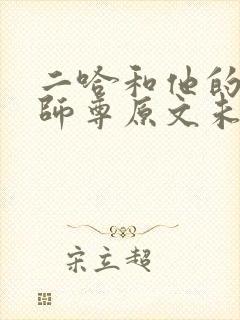 二哈和他的
师尊原文未
宋立超